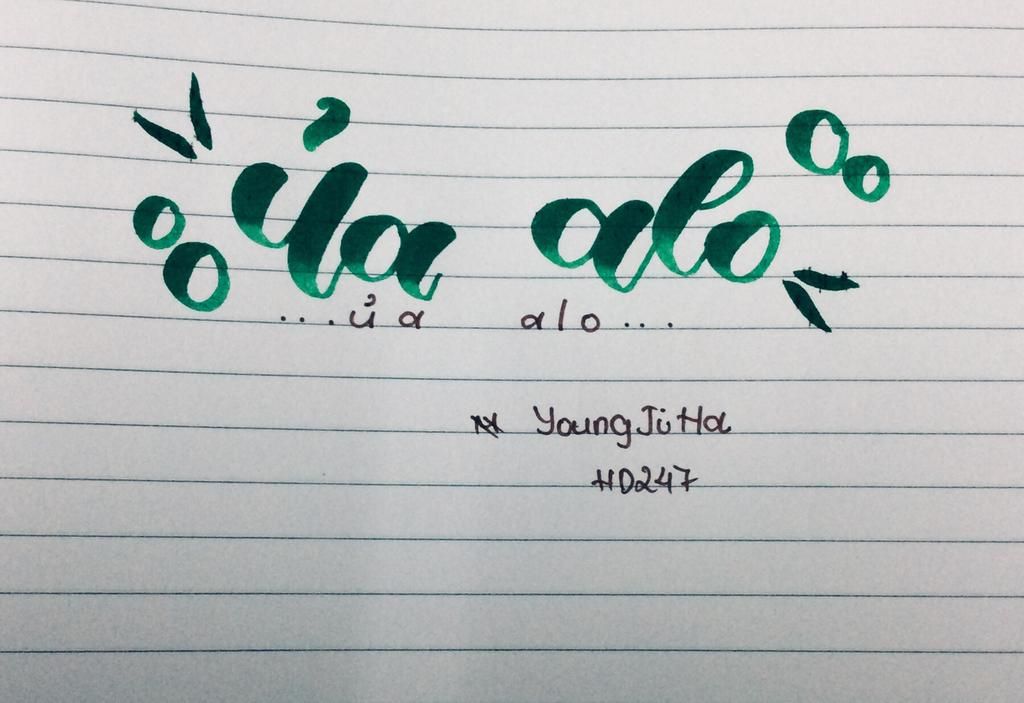 Ủa alo
...ủa alo...
YoungJiHa
HD247